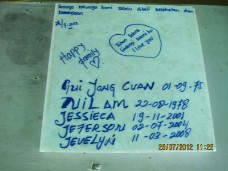 Semoga keluarga kami selalu diberi kesehatan dan
Happy family
I love you
Gui Jong Cuan 01-09-75
NILAM 22-08-1978
JESSIECA 19-11-2001
JEFERSON 02-07-2004
JEVELYN 11-03-2008
28/07/2012 11:22